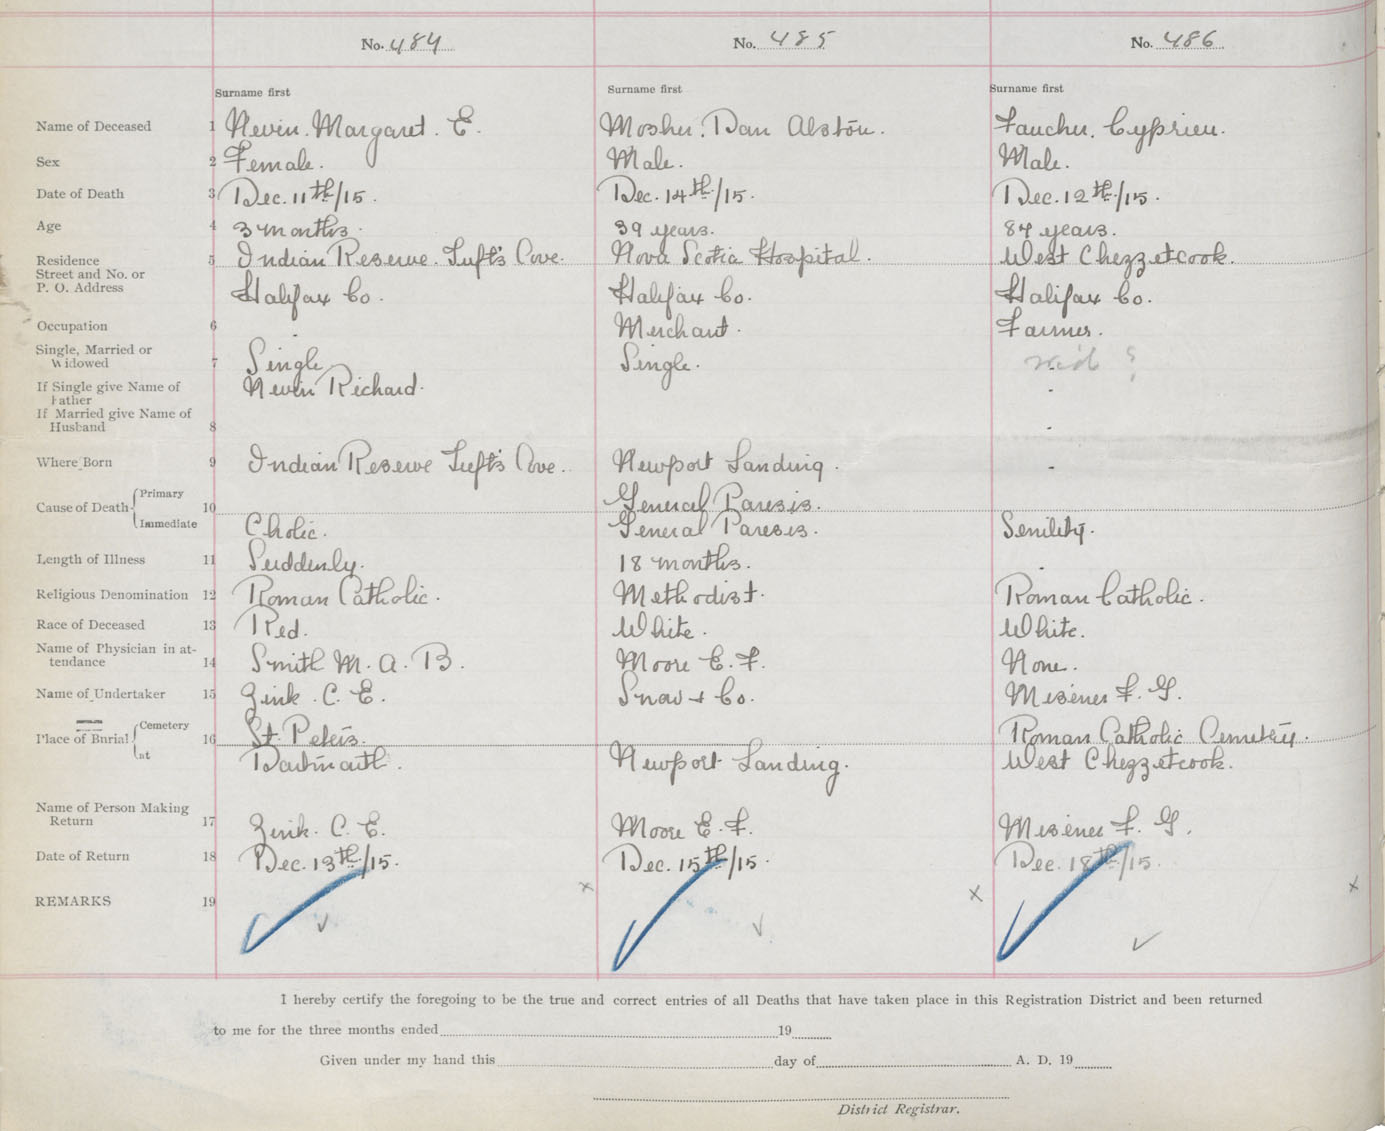 No. 484 No. 485 No. 486
Surname first Surname first Surname first
Name of Deceased 1 Nevin. Margaret. E. Mosher. Dan Alston. Faucher. Cyprien.
Sex 2 Female. Male. Male.
Date of Death 3 Dec. 11th/15. Dec. 14th/15. Dec. 12th/15.
Age 4 3 months. 39 years. 84 years.
Residence 5 Indian Reserve. Tuft's Cove. Nova Scotia Hospital. West Chezzetcook.
Street and No. or
P. O. Address Halifax Co. Halifax Co. Halifax Co.
Occupation 6 - Merchant. Farmer.
Single, Married or
Widowed 7 Single Single. ?
If Single give Name of
Father Nevin Richard. -
If Married give Name of
Husband 8 -
Where Born 9 Indian Reserve Tuft's Cove. Newport Landing. -
Cause of Death Primary 10 General Paresis.
Immediate Cholic. General Paresis. Senility.
Length of Illness 11 Suddenly. 18 months. -
Religious Denomination 12 Roman Catholic. Methodist. Roman Catholic.
Race of Deceased 13 Red. White. White.
Name of Physician in at-
tendance 14 Smith M. A. B. Moore E. F. None.
Name of Undertaker 15 Zink. C. E. Snow + Co. Misener F. G.
Place of Burial Cemetery 16 St. Peters. Roman Catholic Cemetery.
at Dartmouth. Newport Landing. West Chezzetcook.
Name of Person Making
Return 17 Zink. C. E. Moore E. F. Misener F. G.
Date of Return 18 Dec. 13th/15. Dec. 15th/15. Dec. 18th/15.
REMARKS 19 x x x
I hereby certify the foregoing to be the true and correct entries of all Deaths that have taken place in this Registration District and been returned
to me for the three months ended 19
Given under my hand this day of A. D. 19
District Registrar.